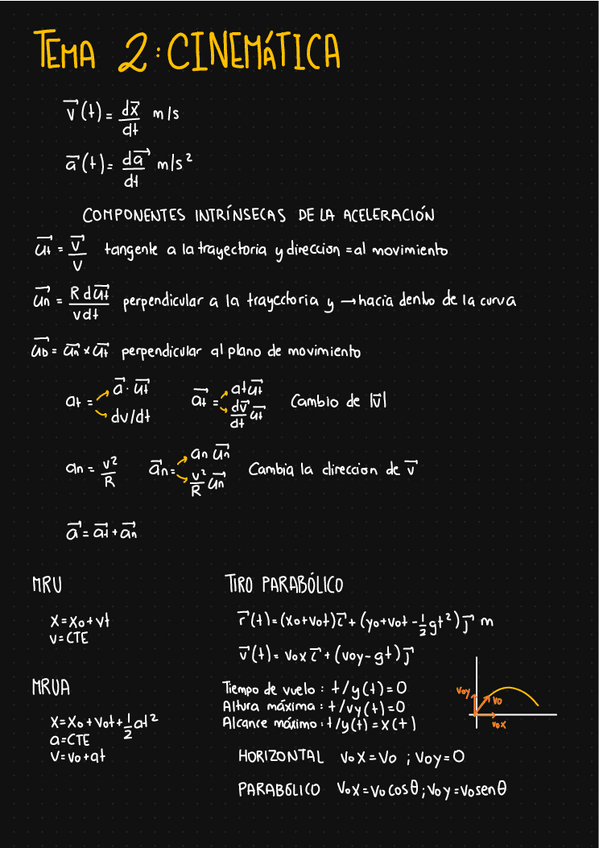 TEMA 2: CINEMÁTICA
v⃗(t) = dx⃗/dt m/s
a⃗(t) = da⃗/dt m/s²
COMPONENTES INTRÍNSECAS DE LA ACELERACIÓN
ut⃗ = v⃗/v tangente a la trayectoria y direccion = al movimiento
un⃗ = R dut⃗/vdt perpendicular a la trayectoria y → hacia dentro de la curva
ub⃗ = un⃗ × ut⃗ perpendicular al plano de movimiento
at = a⃗ · ut⃗ dv/dt at⃗ = at ut⃗ dv⃗/dt ut⃗ Cambio de |v⃗|
an = v²/R an⃗ = an un⃗ v²/R un⃗ Cambia la direccion de v⃗
a⃗ = at⃗ + an⃗
MRU
x = x0 + vt
v = CTE
MRUA
x = x0 + v0t + 1/2 at²
a = CTE
v = v0 + at
TIRO PARABÓLICO
r⃗(t) = (x0 + v0t) i⃗ + (y0 + v0t - 1/2 gt²) j⃗ m
v⃗(t) = v0x i⃗ + (v0y - gt) j⃗
Tiempo de vuelo: t/y(t) = 0
Altura máxima: t/vy(t) = 0
Alcance máximo: t/y(t) = x(t)
v0y
v0
v0x
HORIZONTAL v0x = v0 ; v0y = 0
PARABÓLICO v0x = v0 cos θ ; v0y = v0 sen θ